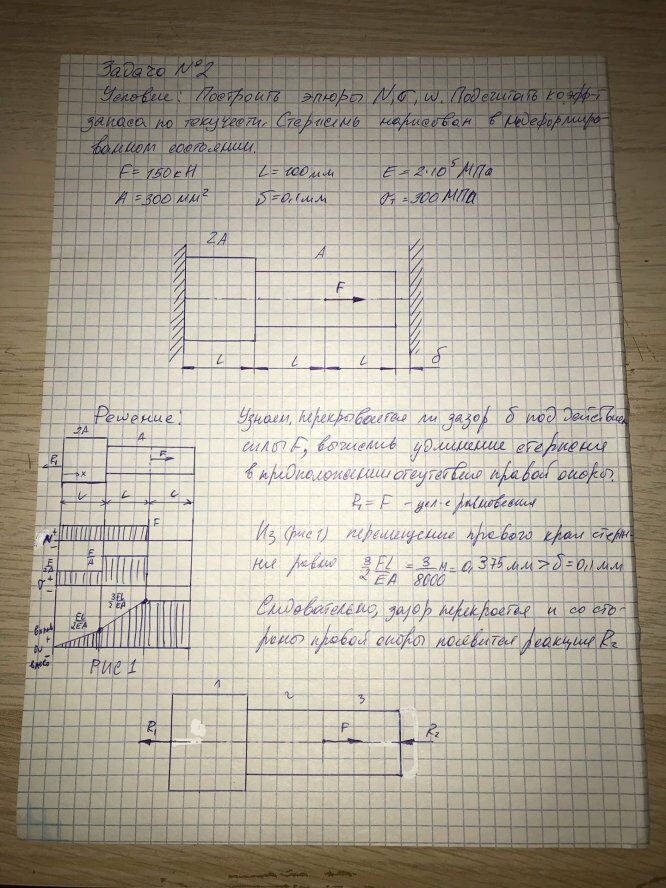 Задача №2
Условие: Построить эпюры N, σ, w. Подсчитать коэфф-т
запаса по текучести. Стержень нарисован в недеформиро-
ванном состоянии.
F = 150 кН L = 100 мм E = 2·10⁵ МПа
A = 300 мм² δ = 0,1 мм σт = 300 МПа
2A A
F
L L L δ
Решение: Узнаем, перекрывается ли зазор δ под действием
силы F, вычислив удлинение стержня
в предположении отсутствия правой опоры.
R₁ = F - усл-е равновесия
Из (рис 1) перемещение правого края стерж-
ня равно 3/2 FL/EA = 3/8000 м = 0,375 мм > δ = 0,1 мм
Следовательно, зазор перекроется и со сто-
роны правой опоры появится реакция R₂
2A A
R₁ x F
L L L
N + - F
σ + - F/2A F/A
FL/2EA 3FL/2EA
вправо + 0 w
влево
РИС 1
1 2 3
R₁ F R₂